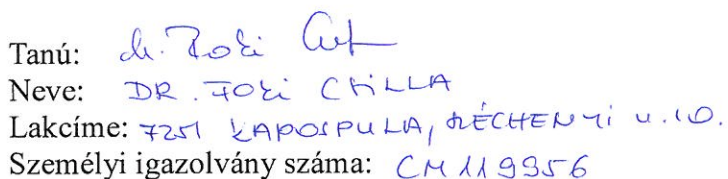 Tanú: dr. Foki
Neve: DR. FOKI CSILLA
Lakcíme: 7251 KAPOSPULA, SZÉCHENYI u. 10.
Személyi igazolvány száma: CM 119956